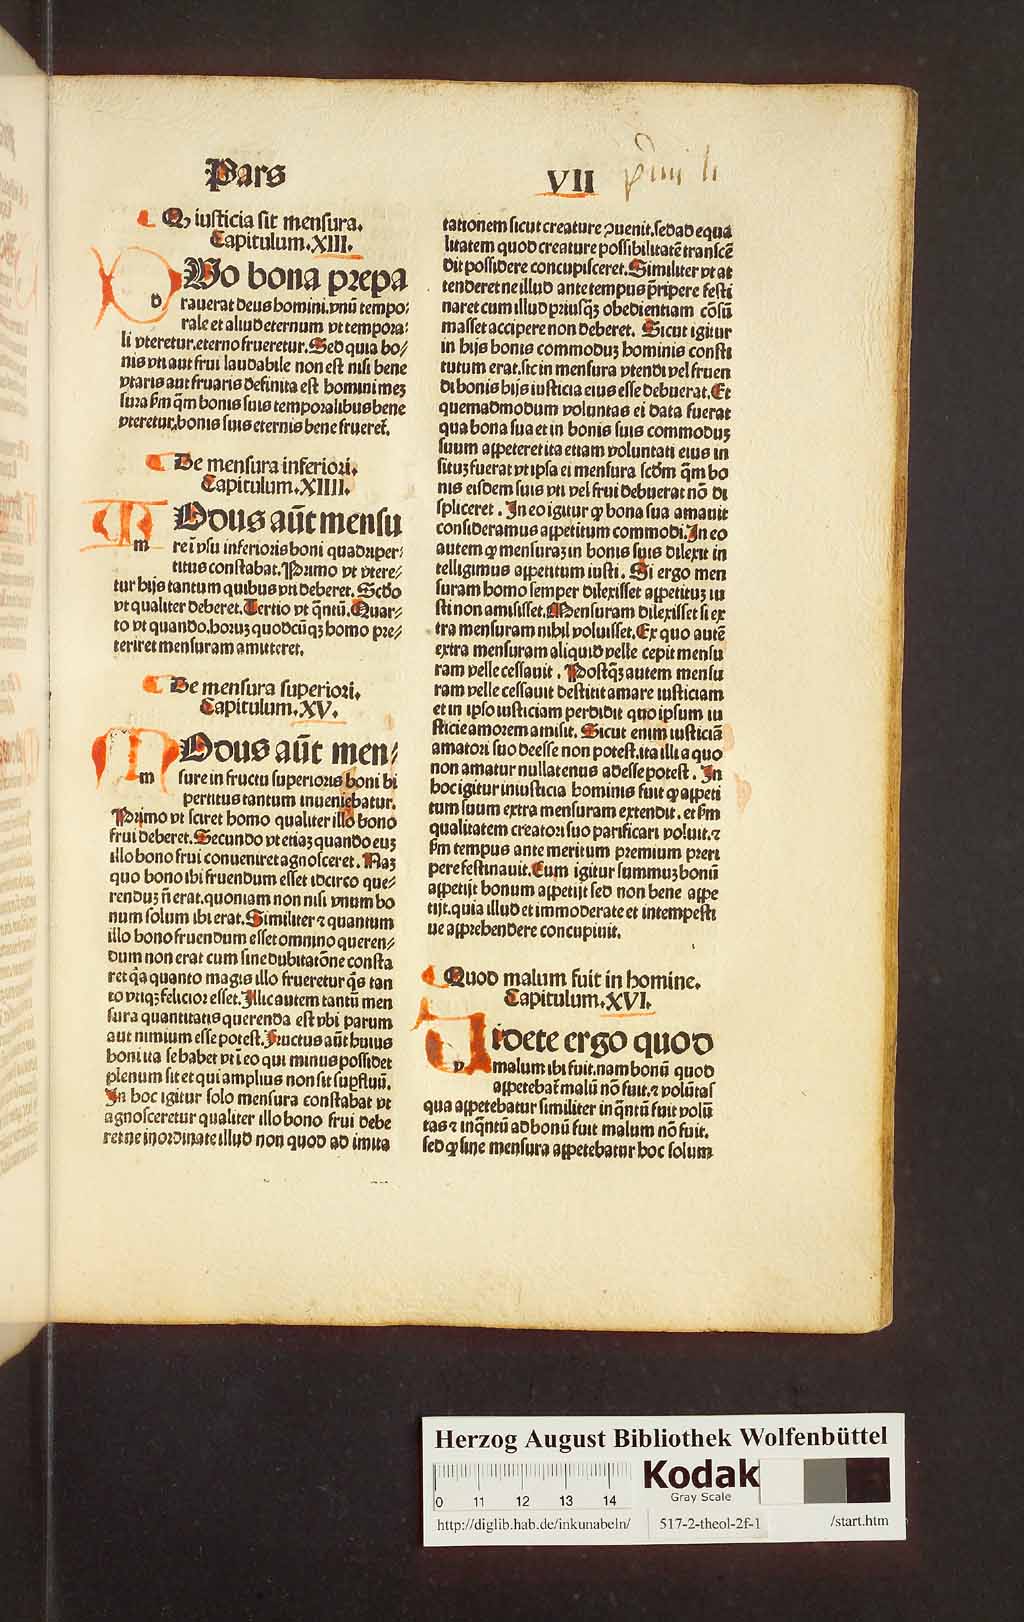 Pars
VII
Qꝫ iusticia sit mensura.
Capitulum.XIII.
DVo bona prepa
d
rauerat deus homini.vnū tempo⸗
rale et aliud eternum vt tempora⸗
li vteretur.eterno frueretur.Sed quia bo⸗
nis vti aut frui laudabile non est nisi bene
vtaris aut fruaris definita est homini meꝫ
sura ẜm q̄m bonis suis temporalibus bene
vteretur,bonis suis eternis bene fruereť.
De mensura inferiori.
Capitulum.XIIII.
MOdus aūt mensu
m
re ī vsu inferioris boni quadriper⸗
titus constabat.Primo vt vtere⸗
tur hijs tantum quibus vti deberet.Scđo
vt qualiter deberet.Tertio vt q̄ntū.Quar⸗
to vt quando.horuꝫ quodcūqꝫ homo pre⸗
teriret mensuram amitteret.
De mensura superiori.
Capitulum.XV.
MOdus aūt men⸗
m
sure in fructu superioris boni bi
pertitus tantum inueniebatur.
Primo vt sciret homo qualiter illo bono
frui deberet.Secundo vt etiaꝫ quando euꝫ
illo bono frui conueniret agnosceret.Naꝫ
quo bono ibi fruendum esset idcirco que⸗
renduꝫ n̄ erat.quoniam non nisi vnum bo
num solum ibi erat.Similiter ⁊ quantum
illo bono fruendum esset omnino queren⸗
dum non erat cum sine dubitatōne consta
ret q̇a quanto magis illo frueretur q̇s tan
to vtiqꝫ felicior esset.Illic autem tantū men
sura quantitatis querenda est vbi parum
aut nimium esse potest.Fructus aūt huius
boni ita se habet vt ī eo qui minus possidet
plenum sit et qui amplius non sit suꝑfluū.
In hoc igitur solo mensura constabat vt
agnosceretur qualiter illo bono frui debe
ret ne inordinate illud non quod ad imita
tationem sicut creature ꝯuenit.sed ad equa
litatem quod creature possibilitatē transcē
dit possidere concupisceret.Similiter vt at
tenderet ne illud ante tempus p̄ripere festi
naret cum illud priusqꝫ obedientiam cōsū
masset accipere non deberet. Sicut igitur
in hijs bonis commoduꝫ hominis consti
tutum erat.sic in mensura vtendi vel fruen
di bonis hijs iusticia eius esse debuerat.Et
quemadmodum voluntas ei data fuerat
qua bona sua et in bonis suis commoduꝫ
suum appeteret ita etiam voluntati eius in
situꝫ fuerat vt ipsa ei mensura scđm q̄m bo
nis eisdem suis vti vel frui debuerat nō di
spliceret. In eo igitur ꝙ bona sua amauit
consideramus appetitum commodi.In eo
autem ꝙ mensuraꝫ in bonis suis dilexit in
telligimus appetitum iusti. Si ergo men
suram homo semper dilexisset appetituꝫ iu
sti non amisisset.Mensuram dilexisset si ex
tra mensuram nihil voluisset.Ex quo autē
extra mensuram aliquid velle cepit mensu
ram velle cessauit. Postqꝫ autem mensu
ram velle cessauit destitit amare iusticiam
et in ipso iusticiam perdidit quo ipsum iu
sticie amorem amisit. Sicut enim iusticiā
amatori suo deesse non potest.ita illi a quo
non amatur nullatenus adesse potest. In
hoc igitur iniusticia hominis fuit ꝙ appeti
tum suum extra mensuram extendit.et ẜm
qualitatem creatori suo parificari voluit.⁊
ẜm tempus ante meritum premium preri
pere festinauit.Cum igitur summuꝫ bonū
appetijt bonum appetijt sed non bene appe
tijt.quia illud et immoderate et intempesti
ue apprehendere concupiuit.
Quod malum fuit in homine.
Capitulum.XVI.
VIdete ergo quod
v
malum ibi fuit.nam bonū quod
appetebať malū nō fuit.⁊ volūtas
qua appetebatur similiter inq̄ntū fuit volū
tas ⁊ inq̄ntū ad bonū fuit malum nō fuit.
sed ꝙ sine mensura appetebatur hoc solum
Herzog August Bibliothek Wolfenbüttel
0 11 12 13 14
Kodak
Gray Scale
http://diglib.hab.de/inkunabeln/ 517-2-theol-2f-1 /start.htm